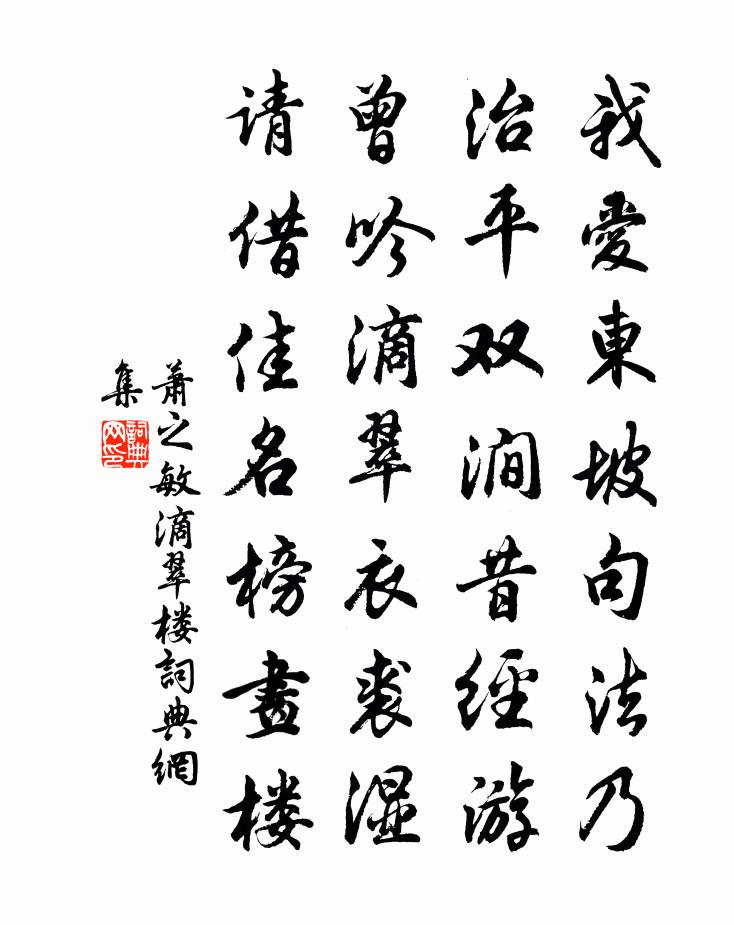 我愛東坡句法乃
治平双澗昔經游
曾吟滴翠衣裘濕
请借佳名榜畫楼
萧之敏滴翠楼詞典網
集
詞典网印